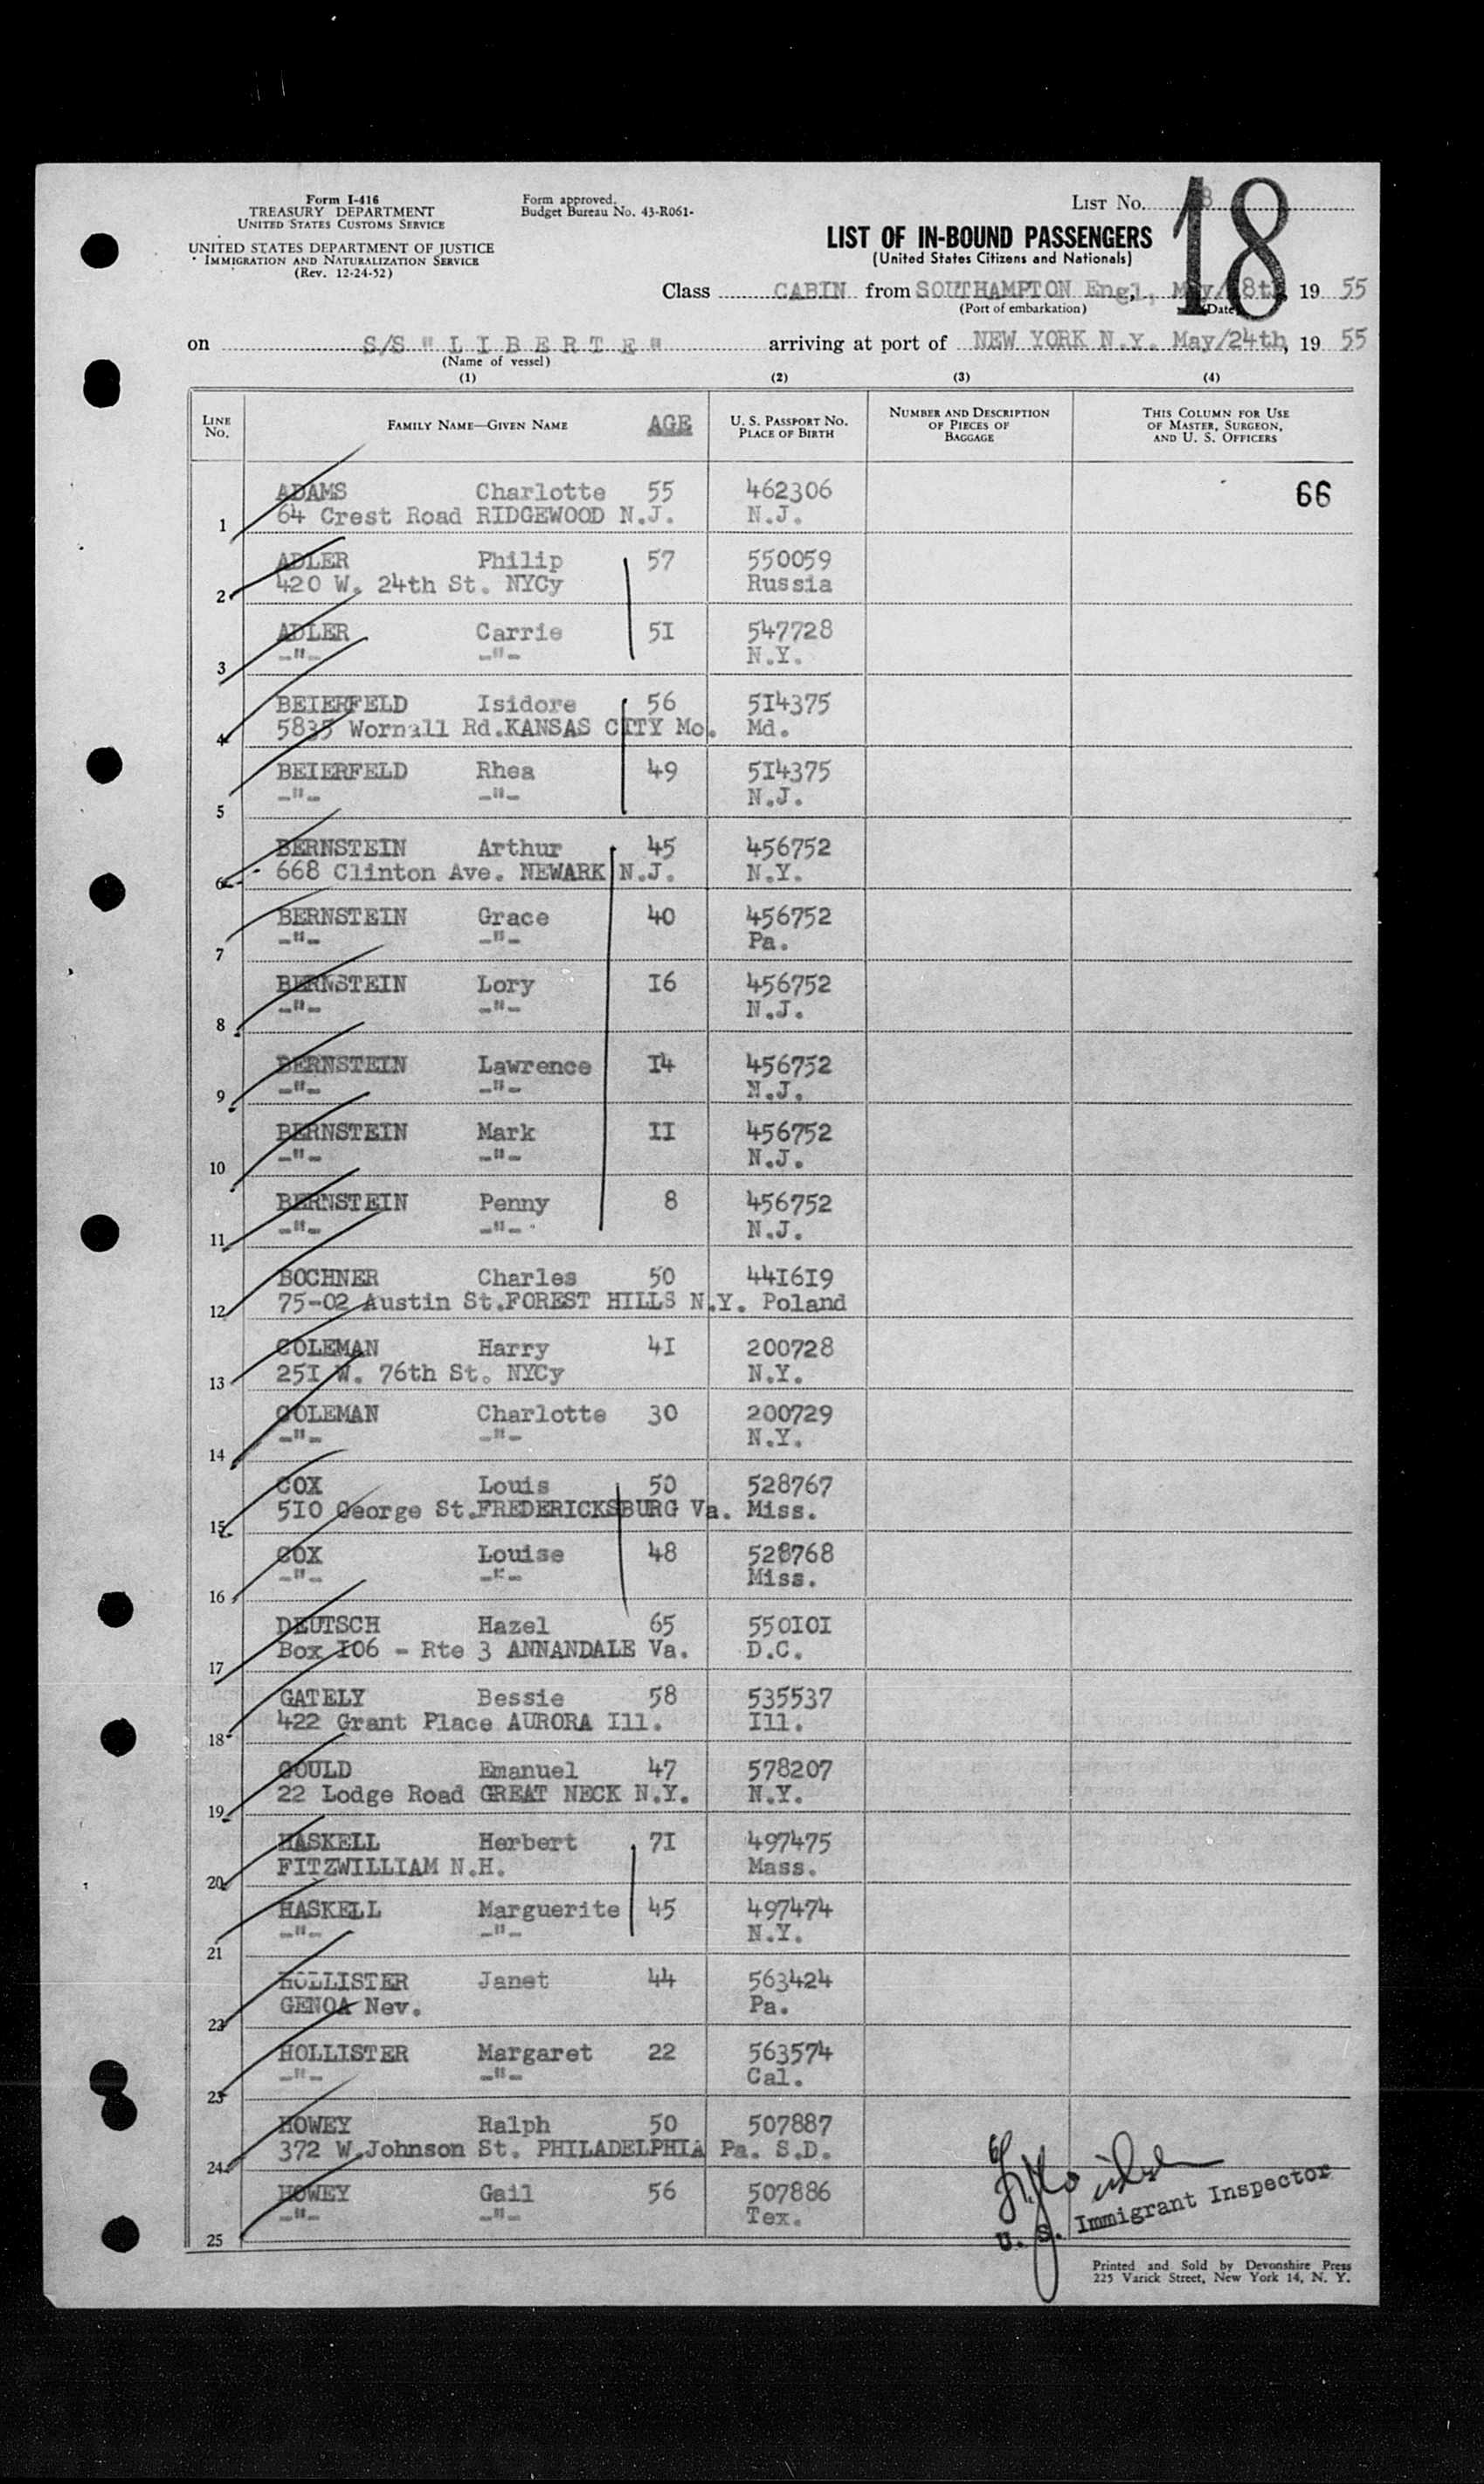 Form I-416
TREASURY DEPARTMENT
UNITED STATES CUSTOMS SERVICE
UNITED STATES DEPARTMENT OF JUSTICE
IMMIGRATION AND NATURALIZATION SERVICE
(Rev. 12-24-52)
Form approved.
Budget Bureau No. 43-R061-
LIST NO. 18
LIST OF IN-BOUND PASSENGERS
(United States Citizens and Nationals)
Class CABIN from SOUTHAMPTON Engl, May/18th, 19 55
(Port of embarkation) (Date)
on S/S "LIBERTE" arriving at port of NEW YORK N.Y. May/24th, 19 55
(Name of vessel)
(1) (2) (3) (4)
LINE NO. FAMILY NAME—GIVEN NAME AGE U. S. PASSPORT NO. PLACE OF BIRTH NUMBER AND DESCRIPTION OF PIECES OF BAGGAGE THIS COLUMN FOR USE OF MASTER, SURGEON, AND U. S. OFFICERS
ADAMS Charlotte 55 462306 66
1 64 Crest Road RIDGEWOOD N.J. N.J.
ADLER Philip 57 550059
2 420 W. 24th St. NYCy Russia
ADLER Carrie 5I 547728
3 -"- -"- N.Y.
BEIERFELD Isidore 56 5I4375
4 5835 Wornall Rd.KANSAS CITY Mo. Md.
BEIERFELD Rhea 49 5I4375
5 -"- -"- N.J.
BERNSTEIN Arthur 45 456752
6 668 Clinton Ave. NEWARK N.J. N.Y.
BERNSTEIN Grace 40 456752
7 -"- -"- Pa.
BERNSTEIN Lory I6 456752
8 -"- -"- N.J.
BERNSTEIN Lawrence I4 456752
9 -"- -"- N.J.
BERNSTEIN Mark II 456752
10 -"- -"- N.J.
BERNSTEIN Penny 8 456752
11 -"- -"- N.J.
BOCHNER Charles 50 44I6I9
12 75-02 Austin St.FOREST HILLS N.Y. Poland
COLEMAN Harry 4I 200728
13 25I W. 76th St. NYCy N.Y.
COLEMAN Charlotte 30 200729
14 -"- -"- N.Y.
COX Louis 50 528767
15 5I0 George St.FREDERICKSBURG Va. Miss.
COX Louise 48 528768
16 -"- -"- Miss.
DEUTSCH Hazel 65 550I0I
17 Box I06 - Rte 3 ANNANDALE Va. D.C.
GATELY Bessie 58 535537
18 422 Grant Place AURORA Ill. Ill.
GOULD Emanuel 47 578207
19 22 Lodge Road GREAT NECK N.Y. N.Y.
HASKELL Herbert 7I 497475
20 FITZWILLIAM N.H. Mass.
HASKELL Marguerite 45 497474
21 -"- -"- N.Y.
HOLLISTER Janet 44 563424
22 GENOA Nev. Pa.
HOLLISTER Margaret 22 563574
23 -"- -"- Cal.
HOWEY Ralph 50 507887
24 372 W.Johnson St. PHILADELPHIA Pa. S.D.
HOWEY Gail 56 507886
25 -"- -"- Tex.
U. S. Immigrant Inspector
Printed and Sold by Devonshire Press
225 Varick Street, New York 14, N. Y.